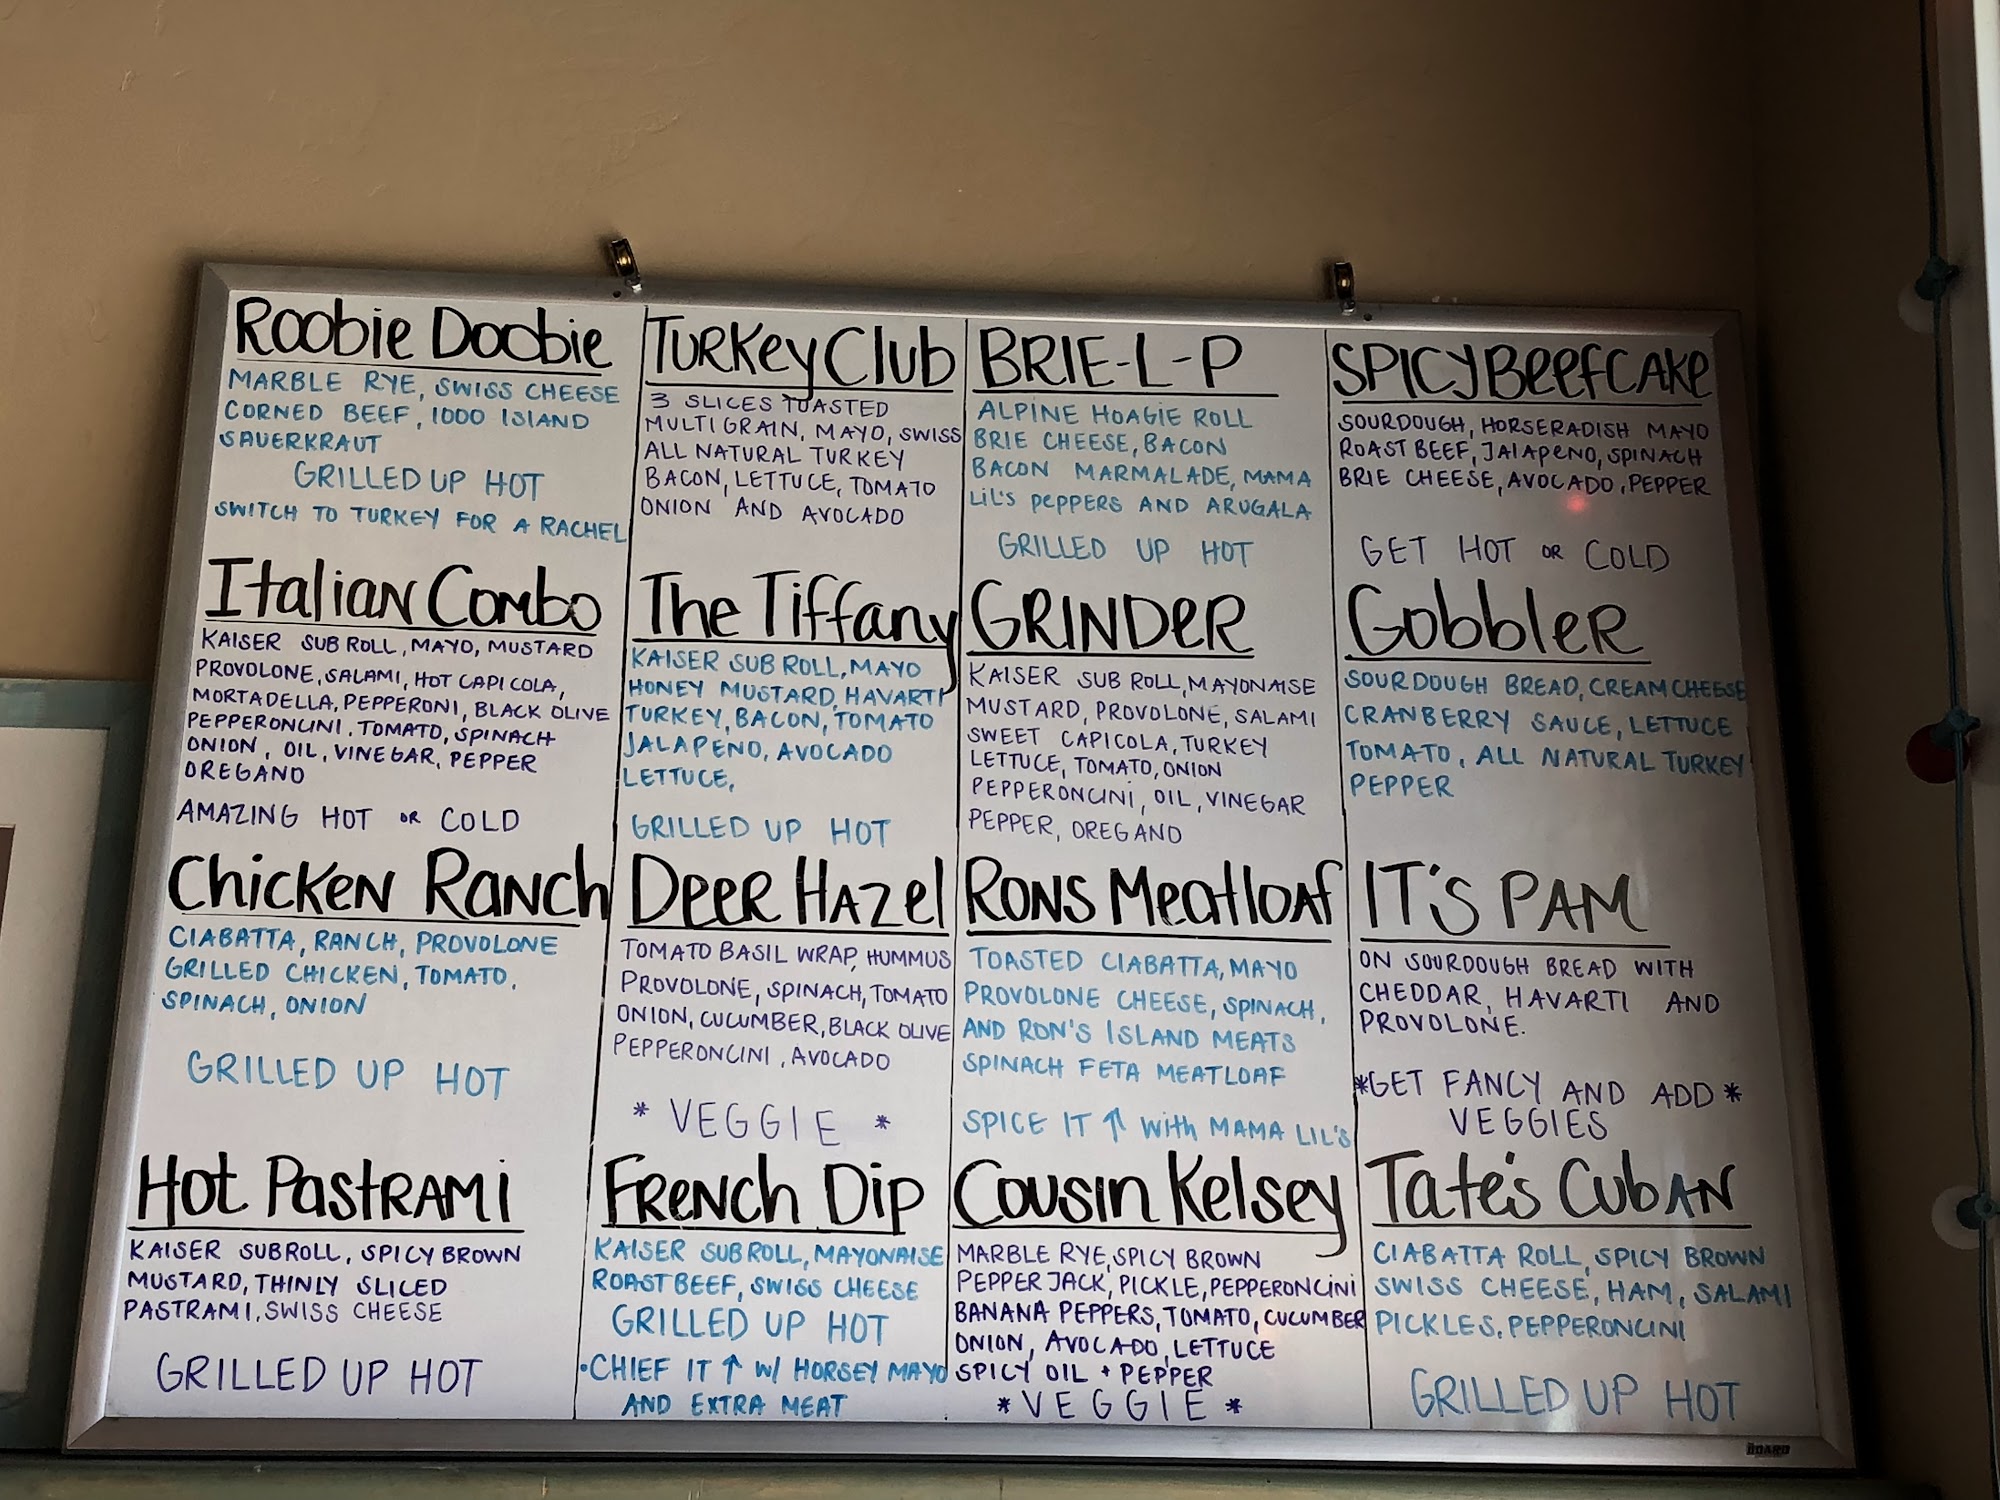 Roobie Doobie
MARBLE RYE, SWISS CHEESE
CORNED BEEF, 1000 ISLAND
SAUERKRAUT
GRILLED UP HOT
SWITCH TO TURKEY FOR A RACHEL
TURKey Club
3 SLICES TOASTED
MULTIGRAIN, MAYO, SWISS
ALL NATURAL TURKEY
BACON, LETTUCE, TOMATO
ONION AND AVOCADO
BRIE-L-P
ALPINE HOAGIE ROLL
BRIE CHEESE, BACON
BACON MARMALADE, MAMA
LIL'S PEPPERS AND ARUGALA
GRILLED UP HOT
SPICY BeefCAKe
SOURDOUGH, HORSERADISH MAYO
ROAST BEEF, JALAPENO, SPINACH
BRIE CHEESE, AVOCADO, PEPPER
GET HOT OR COLD
Italian Combo
KAISER SUB ROLL, MAYO, MUSTARD
PROVOLONE, SALAMI, HOT CAPICOLA,
MORTADELLA, PEPPERONI, BLACK OLIVE
PEPPERONCINI, TOMATO, SPINACH
ONION, OIL, VINEGAR, PEPPER
OREGANO
AMAZING HOT OR COLD
The Tiffany
KAISER SUB ROLL, MAYO
HONEY MUSTARD, HAVARTI
TURKEY, BACON, TOMATO
JALAPENO, AVOCADO
LETTUCE,
GRILLED UP HOT
GRINDER
KAISER SUB ROLL, MAYONAISE
MUSTARD, PROVOLONE, SALAMI
SWEET CAPICOLA, TURKEY
LETTUCE, TOMATO, ONION
PEPPERONCINI, OIL, VINEGAR
PEPPER, OREGANO
Gobbler
SOURDOUGH BREAD, CREAM CHEESE
CRANBERRY SAUCE, LETTUCE
TOMATO, ALL NATURAL TURKEY
PEPPER
Chicken Ranch
CIABATTA, RANCH, PROVOLONE
GRILLED CHICKEN, TOMATO,
SPINACH, ONION
GRILLED UP HOT
Deer Hazel
TOMATO BASIL WRAP, HUMMUS
PROVOLONE, SPINACH, TOMATO
ONION, CUCUMBER, BLACK OLIVE
PEPPERONCINI, AVOCADO
* VEGGIE *
RONS Meatloaf
TOASTED CIABATTA, MAYO
PROVOLONE CHEESE, SPINACH,
AND RON'S ISLAND MEATS
SPINACH FETA MEATLOAF
SPICE IT ↑ with MAMA LIL'S
IT'S PAM
ON SOURDOUGH BREAD WITH
CHEDDAR, HAVARTI AND
PROVOLONE.
*GET FANCY AND ADD *
VEGGIES
Hot PastRAMi
KAISER SUBROLL, SPICY BROWN
MUSTARD, THINLY SLICED
PASTRAMI, SWISS CHEESE
GRILLED UP HOT
French Dip
KAISER SUB ROLL, MAYONAISE
ROAST BEEF, SWISS CHEESE
GRILLED UP HOT
•CHIEF IT ↑ W/ HORSEY MAYO
AND EXTRA MEAT
Cousin Kelsey
MARBLE RYE, SPICY BROWN
PEPPER JACK, PICKLE, PEPPERONCINI
BANANA PEPPERS, TOMATO, CUCUMBER
ONION, AVOCADO, LETTUCE
SPICY OIL + PEPPER
* VEGGIE *
Tate's Cuban
CIABATTA ROLL, SPICY BROWN
SWISS CHEESE, HAM, SALAMI
PICKLES, PEPPERONCINI
GRILLED UP HOT
BOARD